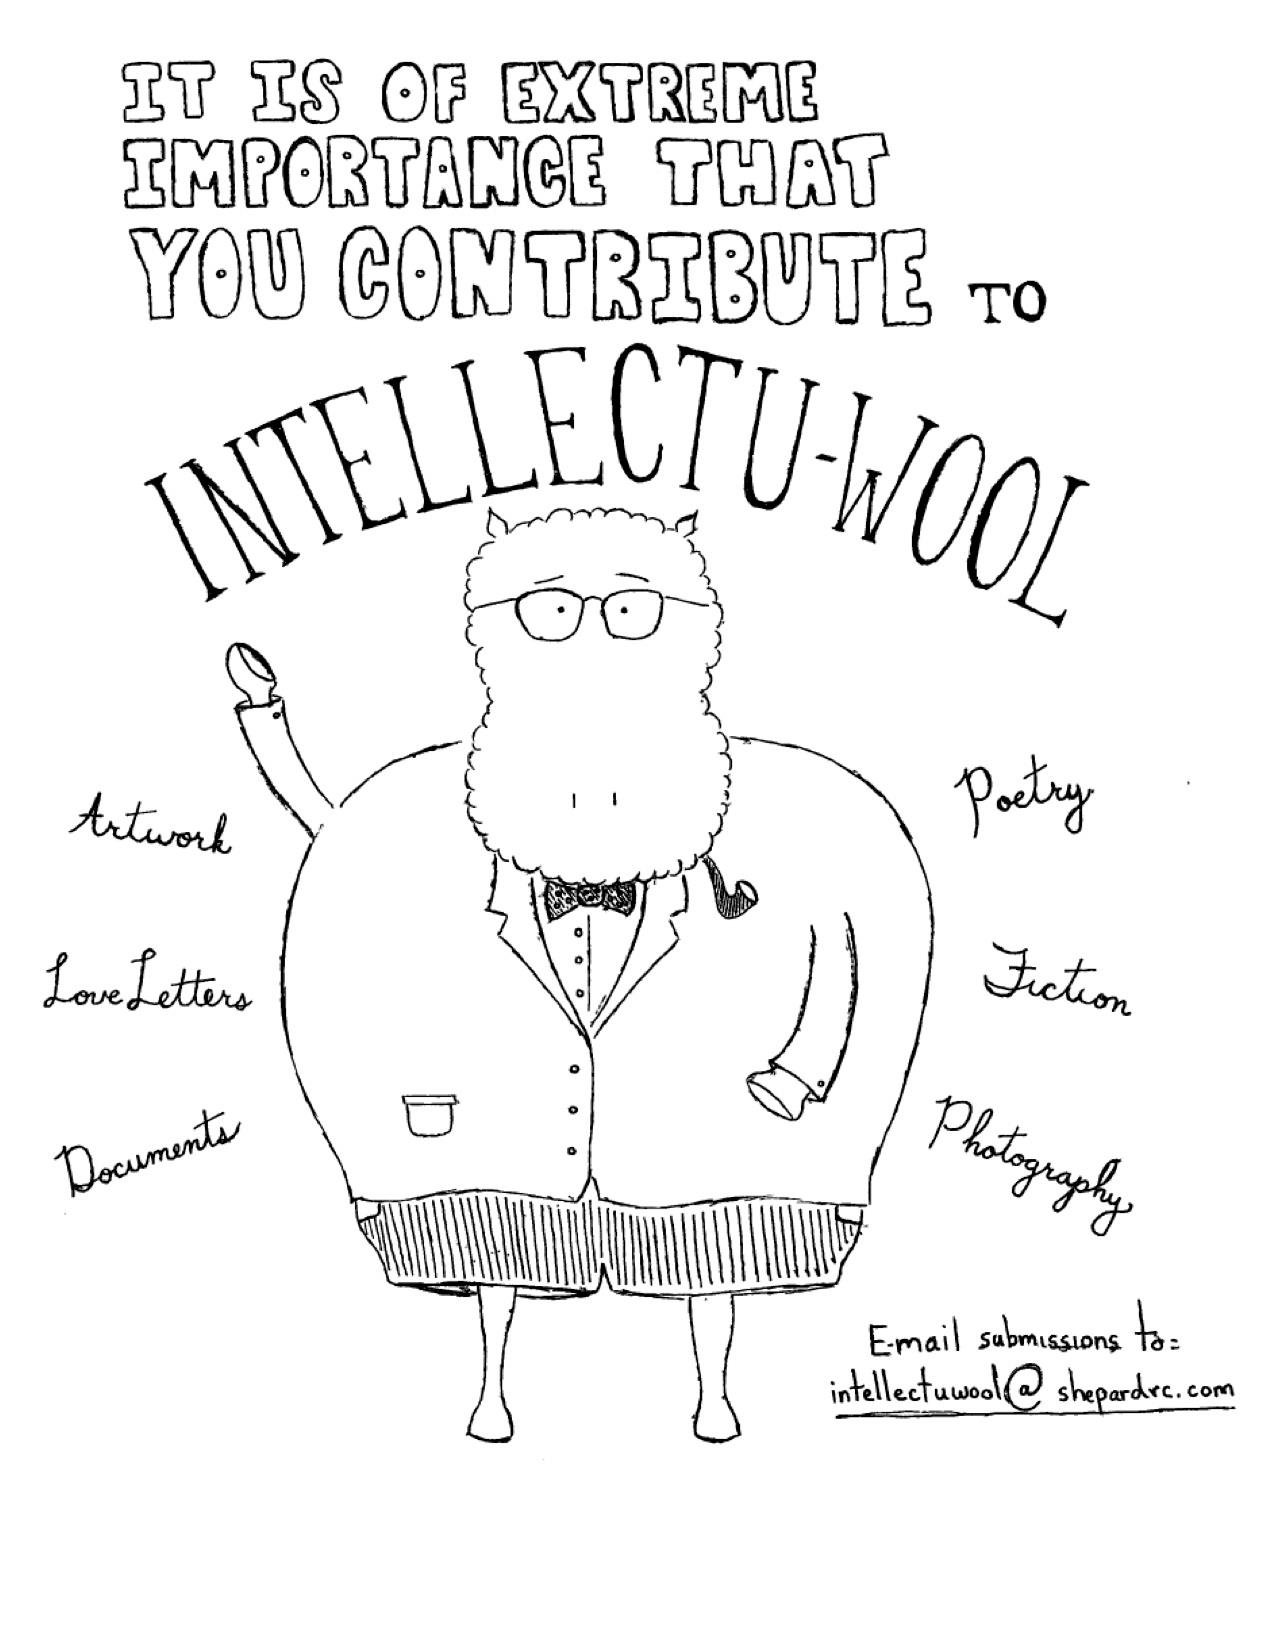 IT IS OF EXTREME
IMPORTANCE THAT
YOU CONTRIBUTE TO
INTELLECTU-WOOL
Artwork
Love Letters
Documents
Poetry
Fiction
Photography
E-mail submissions to:
intellectuwool@shepardrc.com